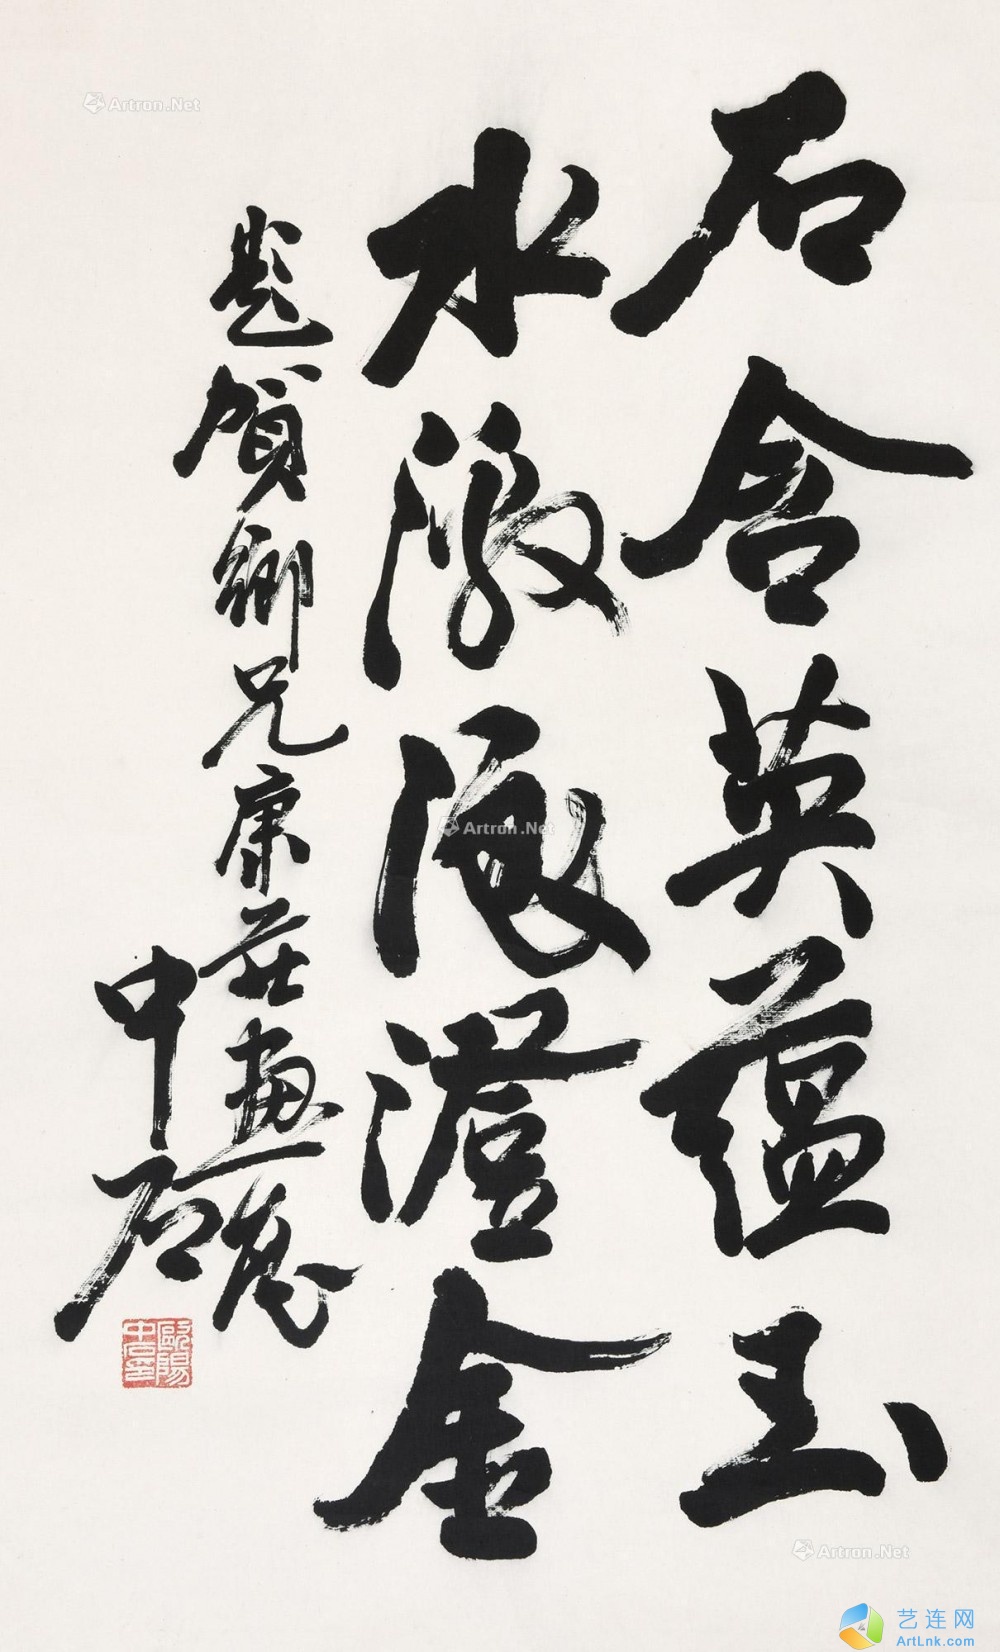 石含英蘊玉
水激浪澄金
題賀鄉兄康莊畫展
中石
歐陽
中石印
Artron.Net
Artron.Net
Artron.Net
艺连网
ArtLnk.com